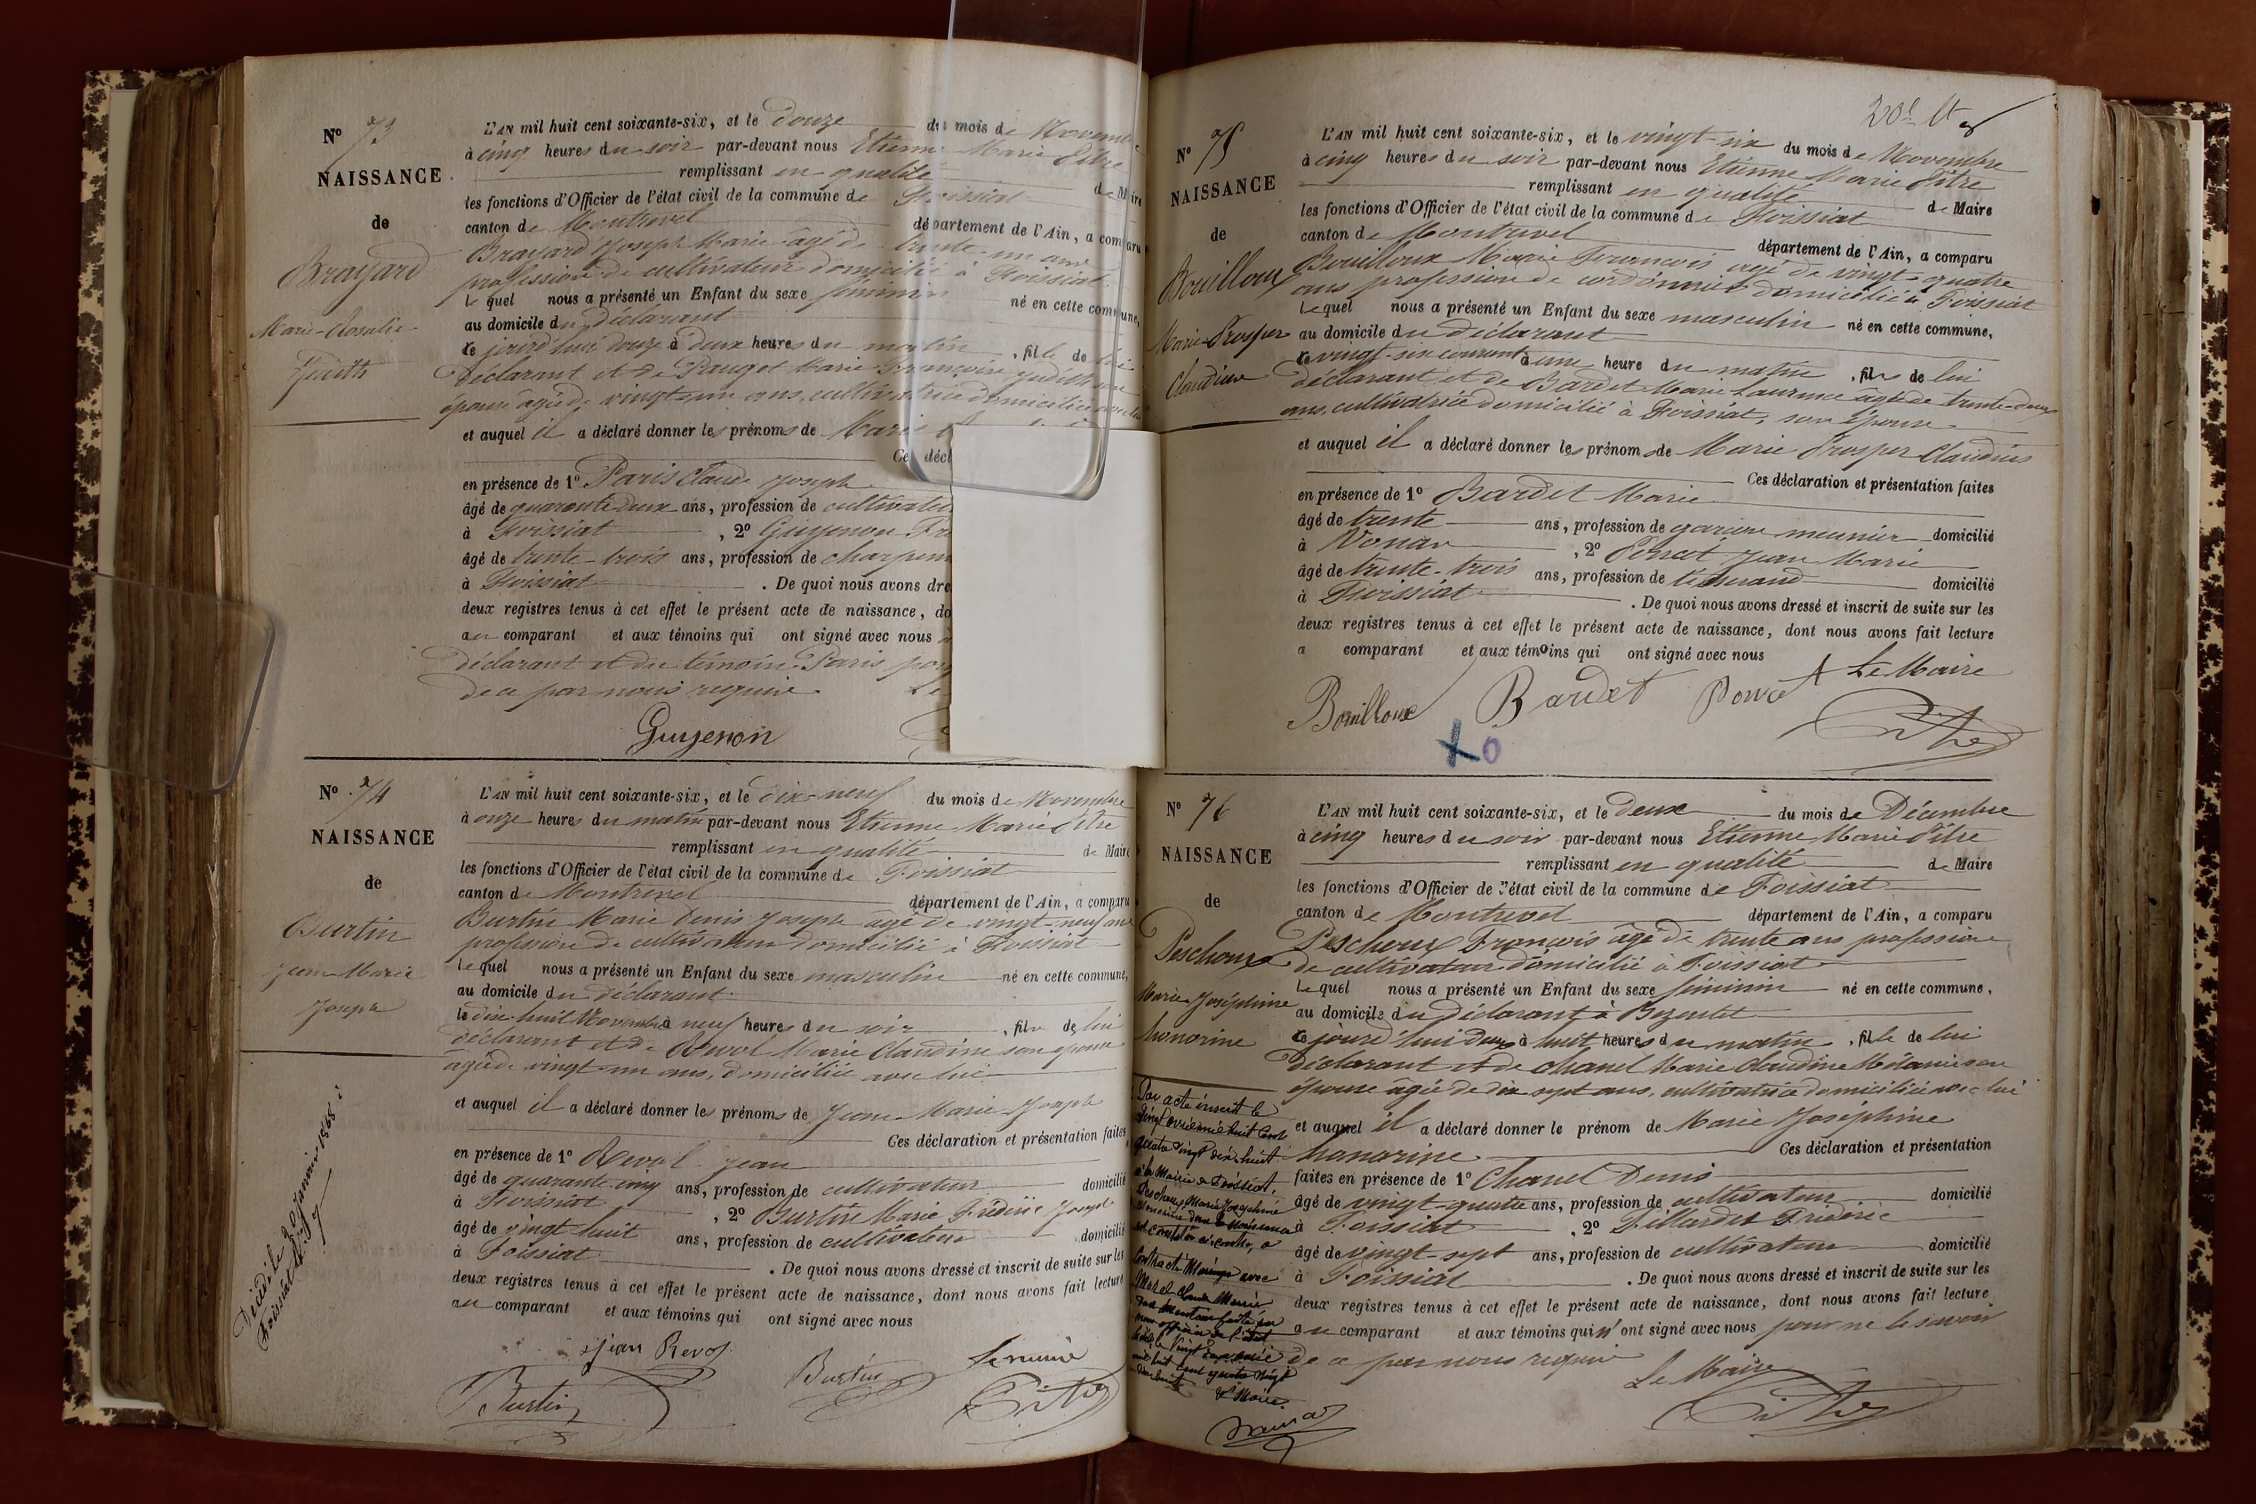 N° 73
NAISSANCE
de
Brayard
Marie-Rosalie-
Judith
L'AN mil huit cent soixante-six, et le douze du mois de Novembre
à cinq heures du soir par-devant nous Etienne Marie Pitre
remplissant en qualité de Maire
les fonctions d'Officier de l'état civil de la commune de Foissiat
canton de Montrevel département de l'Ain, a comparu
Brayard Joseph Marie âgé de trente-un ans
profession de cultivateur domicilié à Foissiat
Lequel nous a présenté un Enfant du sexe féminin né en cette commune,
au domicile du déclarant
ce jourd'hui douze à deux heures du matin, fille de lui
déclarant et de Pauget Marie Françoise Judith son
épouse âgée de vingt-un ans, cultivatrice domiciliée avec lui
et auquel il a déclaré donner les prénoms de Marie
Ces décl
en présence de 1° Paris Claude Joseph
âgé de quarante deux ans, profession de cultivate
à Foissiat, 2° Guyenon Fr
âgé de trente-trois ans, profession de charpen
à Foissiat. De quoi nous avons dre
deux registres tenus à cet effet le présent acte de naissance, do
au comparant et aux témoins qui ont signé avec nous
déclarant et du témoin Paris pou
de ce par nous requis Le
Guyenon
N° 74
NAISSANCE
de
Burtin
Jean-Marie
Joseph
Décédé le 20 Janvier 1868 à
Foissiat
L'AN mil huit cent soixante-six, et le dix-neuf du mois de Novembre
à onze heures du matin par-devant nous Etienne Marie Pitre
remplissant en qualité de Maire
les fonctions d'Officier de l'état civil de la commune de Foissiat
canton de Montrevel département de l'Ain, a comparu
Burtin Marie Denis Joseph âgé de vingt-neuf ans
profession de cultivateur domicilié à Foissiat
Lequel nous a présenté un Enfant du sexe masculin né en cette commune,
au domicile du déclarant
le dix-huit Novembre à neuf heures du soir, fils de lui
déclarant et de Revol Marie Claudine son épouse
âgée de vingt-un ans, domiciliée avec lui
et auquel il a déclaré donner les prénoms de Jean-Marie-Joseph
Ces déclaration et présentation faites
en présence de 1° Revol Jean
âgé de quarante-cinq ans, profession de cultivateur domicilié
à Foissiat, 2° Burtin Marie Frédéric Joseph
âgé de vingt huit ans, profession de cultivateur domicilié
à Foissiat. De quoi nous avons dressé et inscrit de suite sur les
deux registres tenus à cet effet le présent acte de naissance, dont nous avons fait lecture
au comparant et aux témoins qui ont signé avec nous
Jean Revol Le maire
Burtin Burtin Pitre
N° 75
NAISSANCE
de
Bouilloux
Marie-Prosper
Claudius
L'AN mil huit cent soixante-six, et le vingt-six du mois de Novembre
à cinq heures du soir par-devant nous Etienne Marie Pitre
remplissant en qualité de Maire
les fonctions d'Officier de l'état civil de la commune de Foissiat
canton de Montrevel département de l'Ain, a comparu
Bouilloux Marie François âgé de vingt-quatre
ans profession de cordonnier domicilié à Foissiat
Lequel nous a présenté un Enfant du sexe masculin né en cette commune,
au domicile du déclarant
le vingt-six courant à une heure du matin, fils de lui
déclarant et de Bardet Marie Laurence âgée de trente-deux
ans, cultivatrice domicilié à Foissiat, son épouse
et auquel il a déclaré donner les prénoms de Marie Prosper Claudius
Ces déclaration et présentation faites
en présence de 1° Bardet Marie
âgé de trente ans, profession de garçon meunier domicilié
à Vonnas, 2° Poncet Jean Marie
âgé de trente-trois ans, profession de tisserand domicilié
à Foissiat. De quoi nous avons dressé et inscrit de suite sur les
deux registres tenus à cet effet le présent acte de naissance, dont nous avons fait lecture
a comparant et aux témoins qui ont signé avec nous
Le Maire
Bouilloux Bardet Poncet Pitre
N° 76
NAISSANCE
de
Peschoux
Marie Joséphine
honorine
Par acte inscrit le
quatre vingt dix huit
à la Mairie de Foissiat,
Peschoux Marie Joséphine
Honorine dont la naissance
est constatée ci-contre, a
contracté Mariage avec
Morel Claude Marie
L'AN mil huit cent soixante-six, et le deux du mois de Décembre
à cinq heures du soir par-devant nous Etienne Marie Pitre
remplissant en qualité de Maire
les fonctions d'Officier de l'état civil de la commune de Foissiat
canton de Montrevel département de l'Ain, a comparu
Peschoux François âgé de trente ans profession
de cultivateur domicilié à Foissiat
Lequel nous a présenté un Enfant du sexe féminin né en cette commune,
au domicile du déclarant à Bezentet
ce jourd'hui deux à huit heures du matin, fille de lui
déclarant et de Chanel Marie Claudine Mélanie son
épouse âgée de dix sept ans, cultivatrice domiciliée avec lui
et auquel il a déclaré donner le prénom de Marie Joséphine
honorine Ces déclaration et présentation
faites en présence de 1° Chanel Denis
âgé de vingt-quatre ans, profession de cultivateur domicilié
à Foissiat, 2° Pillardet Frédéric
âgé de vingt-sept ans, profession de cultivateur domicilié
à Foissiat. De quoi nous avons dressé et inscrit de suite sur les
deux registres tenus à cet effet le présent acte de naissance, dont nous avons fait lecture
au comparant et aux témoins qui n'ont signé avec nous pour ne le savoir
de ce par nous requis
Le Maire
Pitre